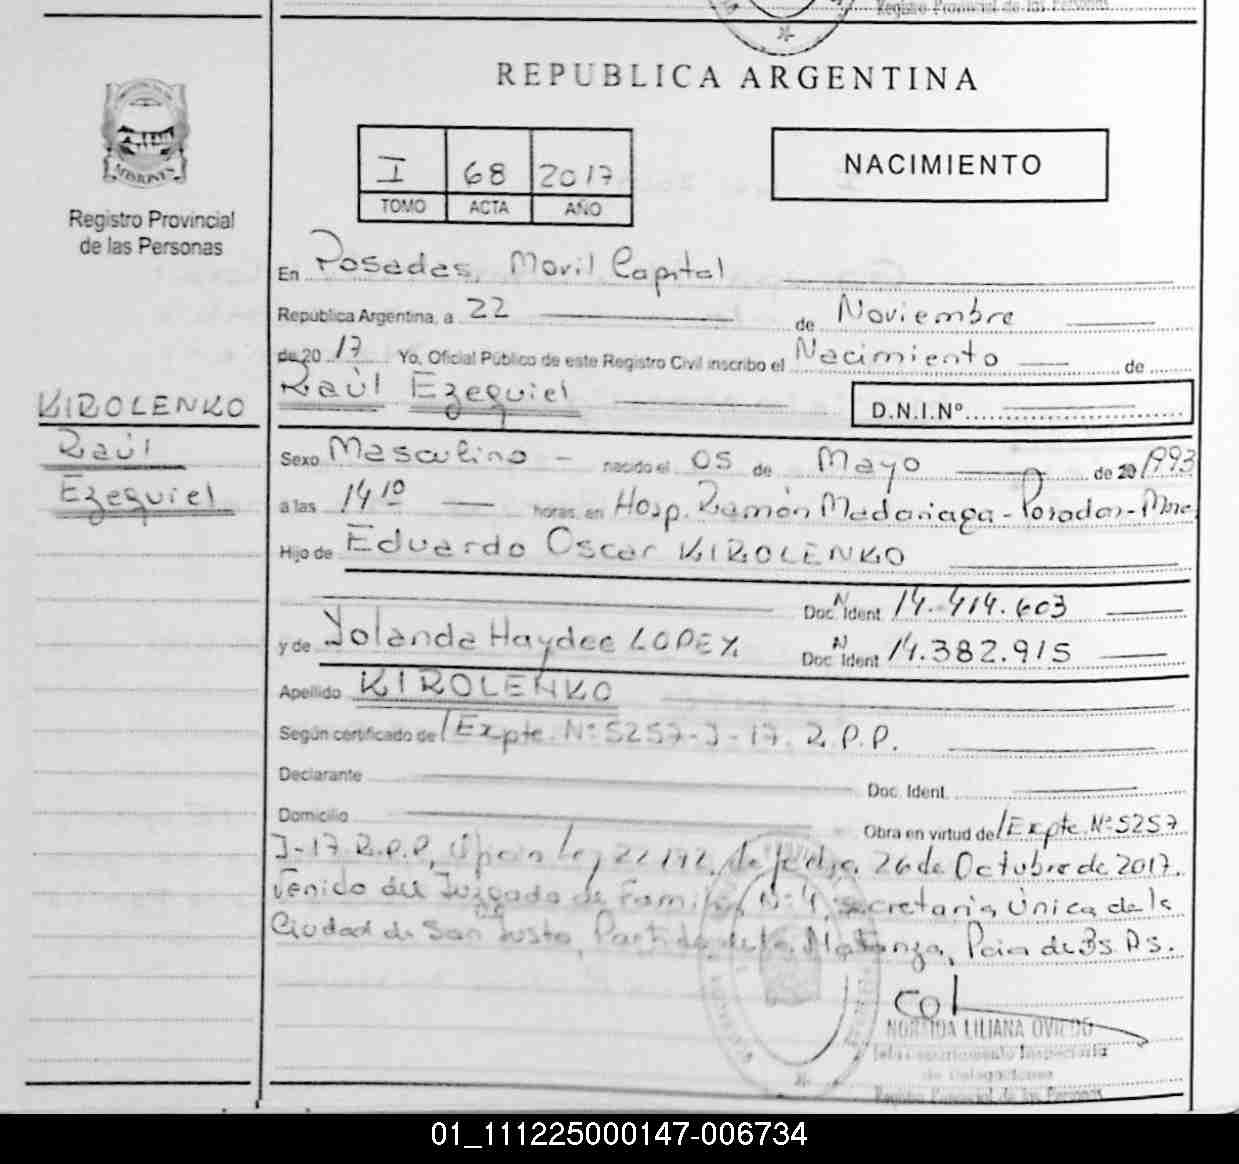 Registro Provincial de las Personas
REPUBLICA ARGENTINA
MISIONES
Registro Provincial
de las Personas
I 68 2017
TOMO ACTA AÑO
NACIMIENTO
En Posadas, Movil Capital
República Argentina, a 22 de Noviembre
de 20 17 Yo, Oficial Público de este Registro Civil inscribo el Nacimiento de
Raúl Ezequiel D.N.I.Nº
KIROLENKO
Raúl
Ezequiel
Sexo Masculino - nacido el 05 de Mayo de 20 1993
a las 14 10 horas, en Hosp. Ramón Madariaga - Posadas - Mnes
Hijo de Eduardo Oscar KIROLENKO
Doc. Ident. N 14.414.603
y de Yolanda Haydee LOPEZ Doc. Ident. N 14.382.915
Apellido KIROLENKO
Según certificado de Expte. Nº 5257-J-17. R.P.P.
Declarante Doc. Ident.
Domicilio Obra en virtud de Expte. Nº 5257
J-17 R.P.P, Oficio Ley 22.172, de fecha, 26 de Octubre de 2017.
Venido del Juzgado de Familia Nº 4, secretaria Única de la
Ciudad de San Justo, Partido de la Matanza, Pcia de Bs. As.
LILIANA OVIEDO
Jefa Departamento Inspectoría
de Delegaciones
Registro Provincial de las Personas
01_111225000147-006734